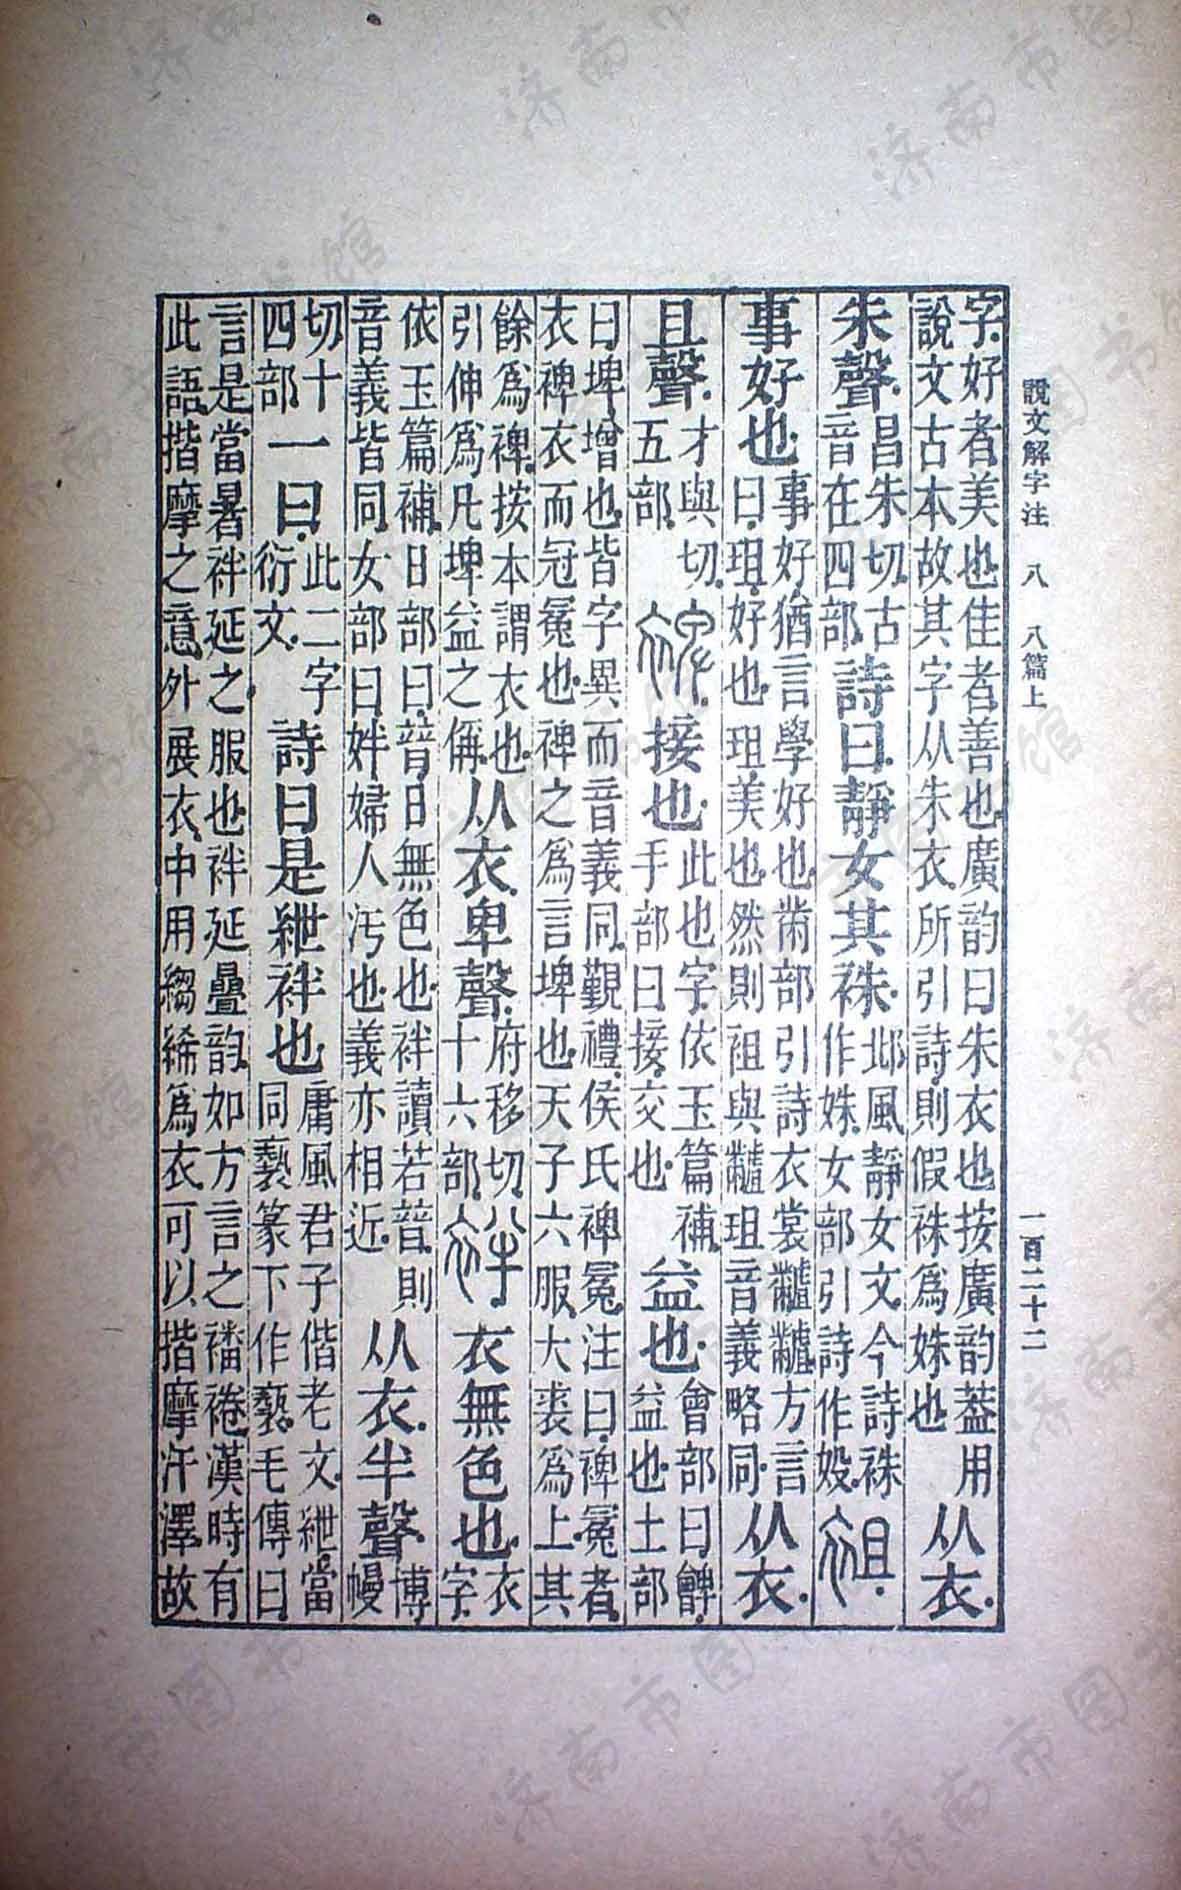 說文解字注 八 八篇上 一百二十二
字.好者美也.佳者善也.廣韵曰朱衣也.按廣韵葢用說文古本.故其字从朱衣.所引詩.則假袾爲姝也从衣.
朱聲.昌朱切.古音在四部.詩曰.靜女其袾.邶風靜女文.今詩袾作姝.女部引詩作㚫.袓.
事好也.事好.猶言學好也.黹部引詩衣裳䰎䰎.方言曰.珇.好也.珇美也.然則袓與䰎珇音義略同.从衣.
且聲.才與切.五部.裨.接也.此也字.依玉篇補.手部曰.接.交也.益也.會部曰.朇.益也.土部
曰埤.增也.皆字異而音義同.覲禮.侯氏裨冕.注曰.裨冕者.衣裨衣而冠冕也.裨之爲言埤也.天子六服.大裘爲上.其
餘爲裨.按本謂衣也.引伸爲凡埤益之偁.从衣.卑聲.府移切.十六部.袢.衣無色也.衣字.
依玉篇補.日部曰暜日無色也.袢讀若暜.則音義皆同.女部曰姅婦人汚也.義亦相近.从衣.半聲.博幔
切十四部一曰.此二字衍文.詩曰是紲袢也.庸風君子偕老文.紲當同褻.篆下作褻.毛傳曰.
言是當暑袢延之服也.袢延疊韵.如方言之襎裷.漢時有此語.揩摩之意.外展衣.中用縐絺爲衣.可以揩摩汗澤.故